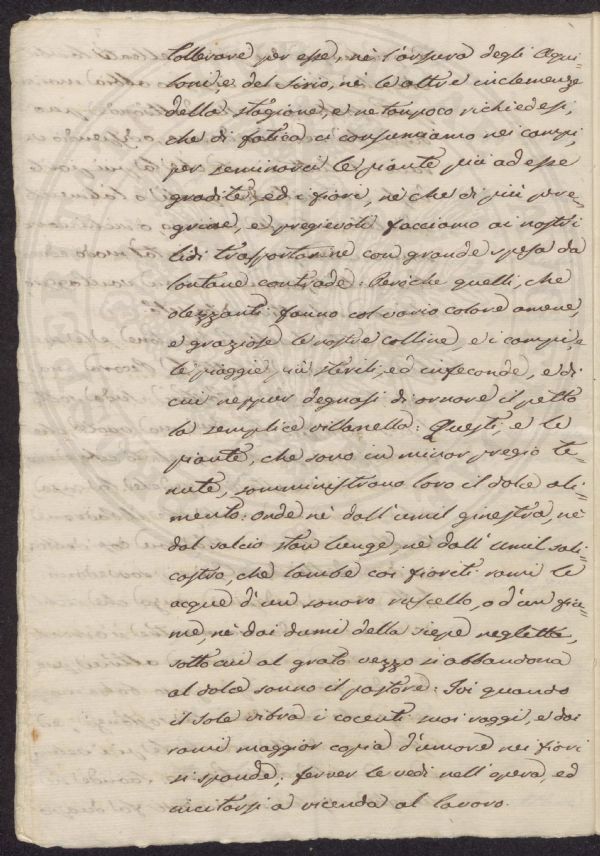 tollerare per esse, nè l'arsura degli Aqui=
loni, e del Sirio, nè le altre inclemenze
della stagione, e netampoco richiedesi,
che di fatica ci consumiamo nei campi,
per seminarci le piante più ad esse
gradite, ed i fiori, nè che di più pere=
grine, e pregievoli facciamo ai nostri
lidi trasportarne con grande spesa da
lontane contrade: Perche quelli, che
olezzanti fanno col vario colore amene,
e graziose le nostre colline, e i campi, e
le piaggie più sterili, ed infeconde, e di
cui neppur degnasi di ornare il petto
la semplice villanella: Questi, e le
piante, che sono in minor pregio te=
nute, somministrano loro il dolce ali=
mento: Onde nè dall'umil ginestra, nè
dal salcio stan lunge, nè dall'umil sali=
castro, che lambe coi fioriti rami le
acque d'un sonoro ruscello, o d'un fiu=
me, nè dai dumi della siepe negletta,
sotto cui al grato rezzo si abbandona
al dolce sonno il pastore: Ivi quando
il sole vibra i cocenti suoi raggi, e dai
rami maggior copia d'umore nei fiori
si sponde; ferver le vedi nell'opera, ed
incitarsi a vicenda al lavoro.